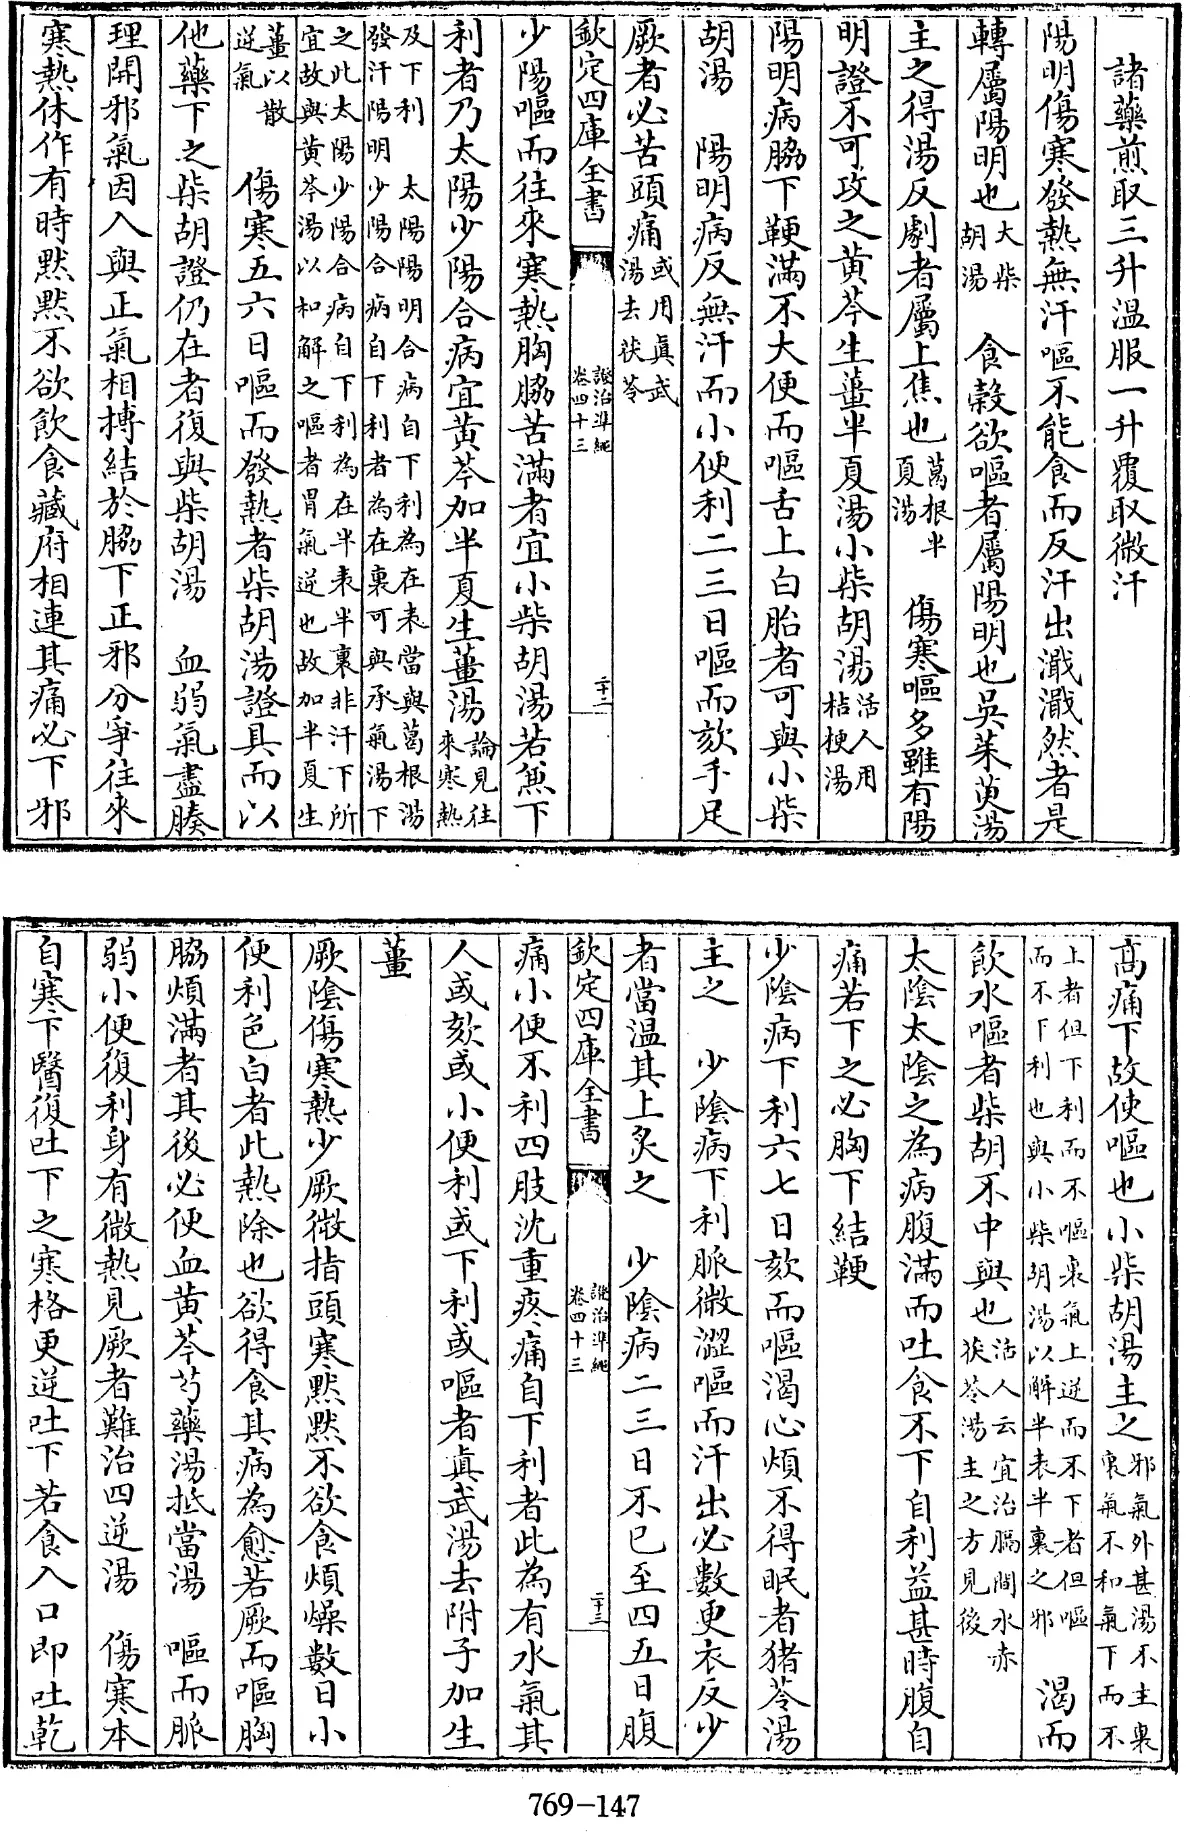 諸藥煎取三升温服一升覆取微汗
陽明傷寒發熱無汗嘔不能食而反汗出濈濈然者是
轉屬陽明也大柴胡湯　食穀欲嘔者屬陽明也吳茱萸湯
主之得湯反劇者屬上焦也葛根半夏湯　傷寒嘔多雖有陽
明證不可攻之黄芩生薑半夏湯小柴胡湯活人用桔梗湯
陽明病脇下鞕滿不大便而嘔舌上白胎者可與小柴
胡湯　陽明病反無汗而小便利二三日嘔而欬手足
厥者必苦頭痛或用真武湯去茯苓
欽定四庫全書　證治準繩卷四十三　二十二
少陽嘔而往來寒熱胸脇苦滿者宜小柴胡湯若兼下
利者乃太陽少陽合病宜黄芩加半夏生薑湯論見往來寒熱
及下利　太陽陽明合病自下利為在表當與葛根湯
發汗陽明少陽合病自下利者為在裏可與承氣湯下
之此太陽少陽合病自下利為在半表半裏非汗下所
宜故與黄芩湯以和解之嘔者胃氣逆也故加半夏生
薑以散逆氣　傷寒五六日嘔而發熱者柴胡湯證具而以
他藥下之柴胡證仍在者復與柴胡湯　血弱氣盡腠
理開邪氣因入與正氣相搏結於脇下正邪分爭往來
寒熱休作有時默默不欲飲食藏府相連其痛必下邪
高痛下故使嘔也小柴胡湯主之邪氣外甚湯不主裏裏氣不和氣下而不
上者但下利而不嘔裏氣上逆而不下者但嘔
而不下利也與小柴胡湯以解半表半裏之邪　渴而
飲水嘔者柴胡不中與也活人云宜治膈間水赤茯苓湯主之方見後
太陰太陰之為病腹滿而吐食不下自利益甚時腹自
痛若下之必胸下結鞕
少陰病下利六七日欬而嘔渴心煩不得眠者猪苓湯
主之　少陰病下利脈微澀嘔而汗出必數更衣反少
者當温其上炙之　少陰病二三日不已至四五日腹
欽定四庫全書　證治準繩卷四十三　二十三
痛小便不利四肢沈重疼痛自下利者此為有水氣其
人或欬或小便利或下利或嘔者真武湯去附子加生
薑
厥陰傷寒熱少厥微指頭寒默默不欲食煩燥數日小
便利色白者此熱除也欲得食其病為愈若厥而嘔胸
脇煩滿者其後必便血黄芩芍藥湯抵當湯　嘔而脈
弱小便復利身有微熱見厥者難治四逆湯　傷寒本
自寒下醫復吐下之寒格更逆吐下若食入口即吐乾
769-147